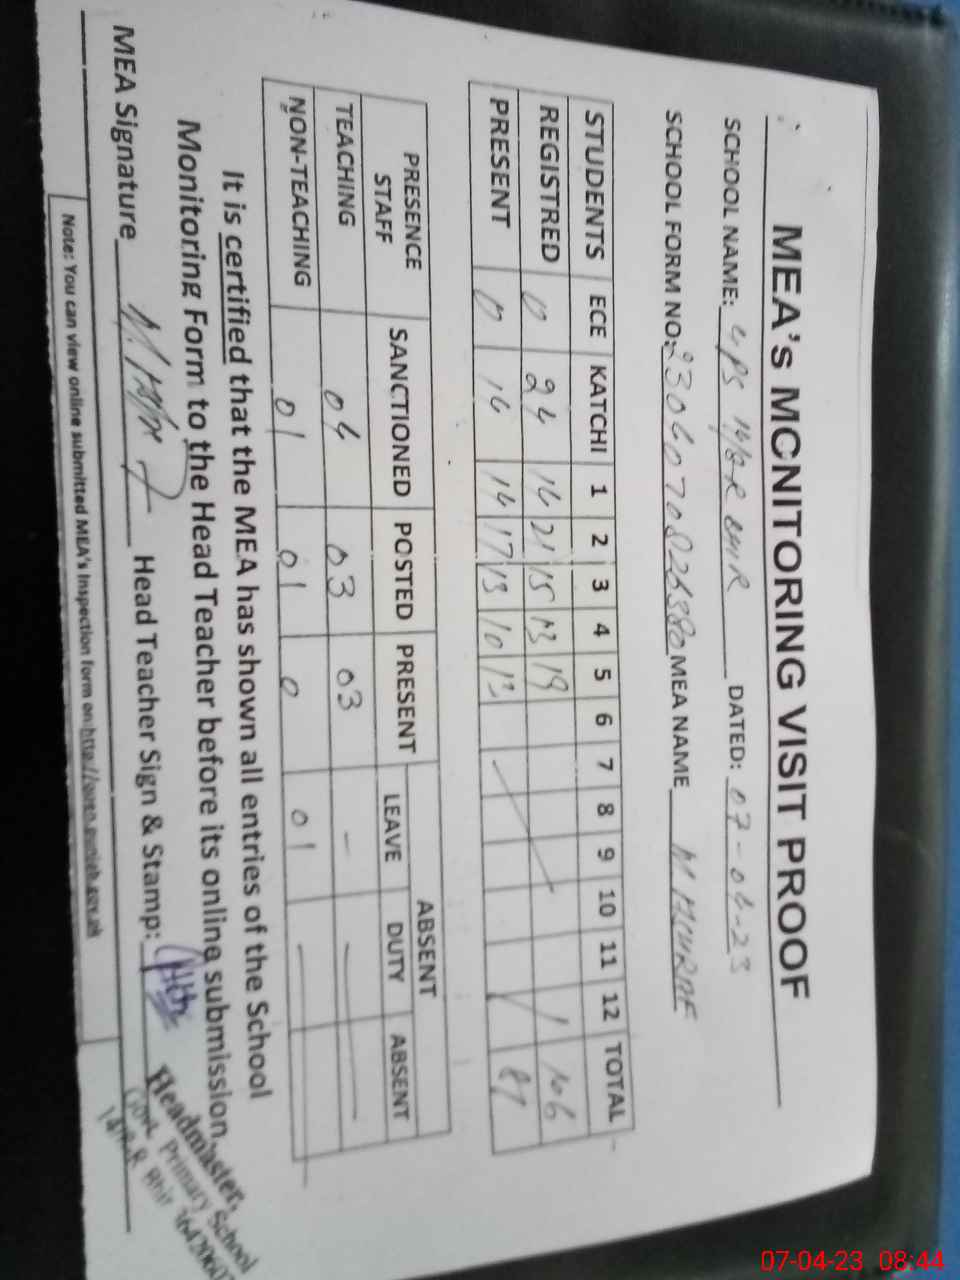 MEA's MCNITORING VISIT PROOF
SCHOOL NAME: DATED: 07-04-23
SCHOOL FORM NO: MEA NAME
STUDENTS ECE KATCHI 1 2 3 4 5 6 7 8 9 10 11 12 TOTAL
REGISTRED 0 24 14 21 15 13 19 106
PRESENT 0 14 14 17 13 10 13
PRESENCE STAFF SANCTIONED POSTED PRESENT ABSENT
LEAVE DUTY ABSENT
TEACHING 04 03 03 - - -
NON-TEACHING 01 01 0 01 - -
It is certified that the MEA has shown all entries of the School
Monitoring Form to the Head Teacher before its online submission.
MEA Signature Head Teacher Sign & Stamp:
Headmaster,
Govt. Primary School
Note: You can view online submitted MEA's Inspection form on
07-04-23 08:44